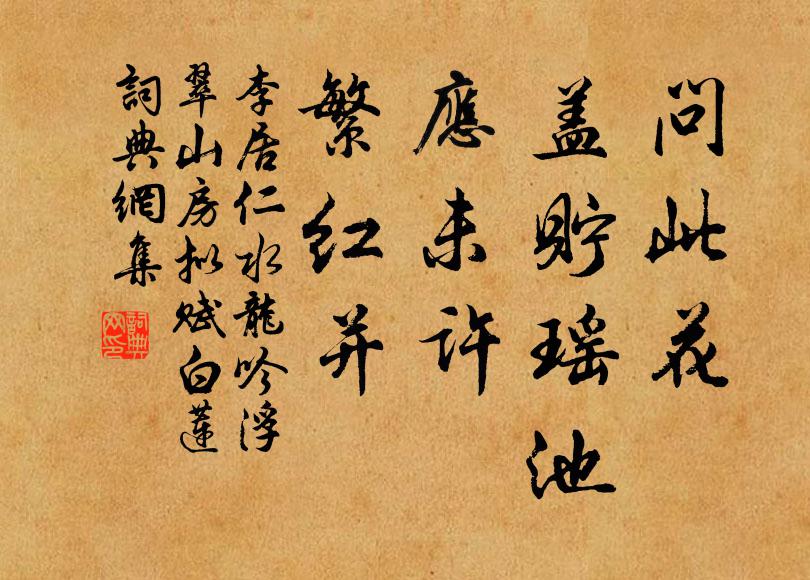 問此花
盖貯瑶池
應未许
繁红并
李居仁水龍吟浮
翠山房拟赋白蓮
詞典網集
詞典網印